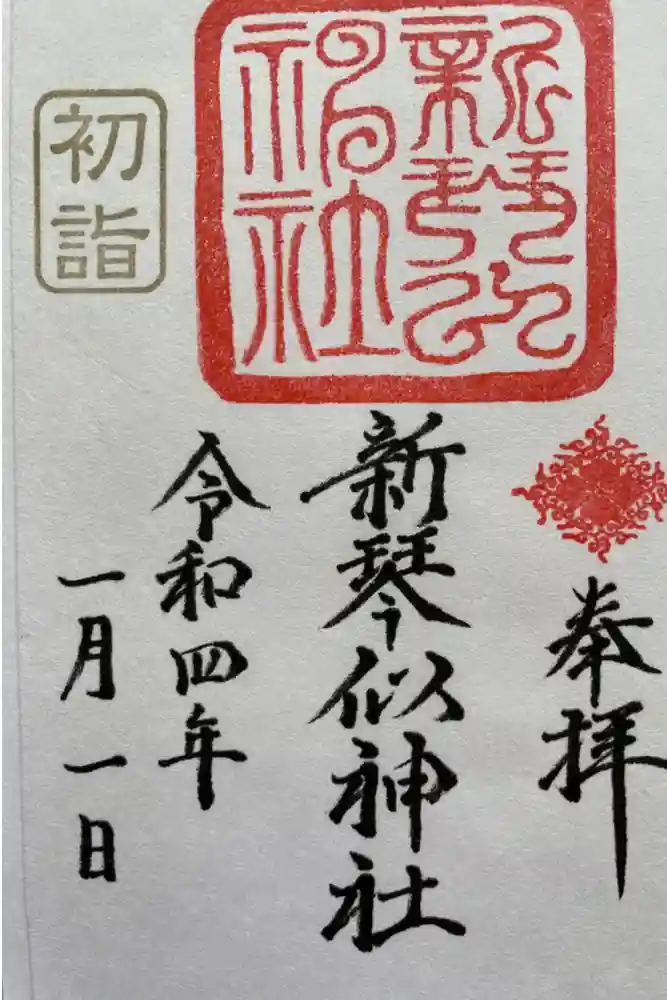 新琴似
神社
初詣
奉拝
新琴似神社
令和四年
一月一日